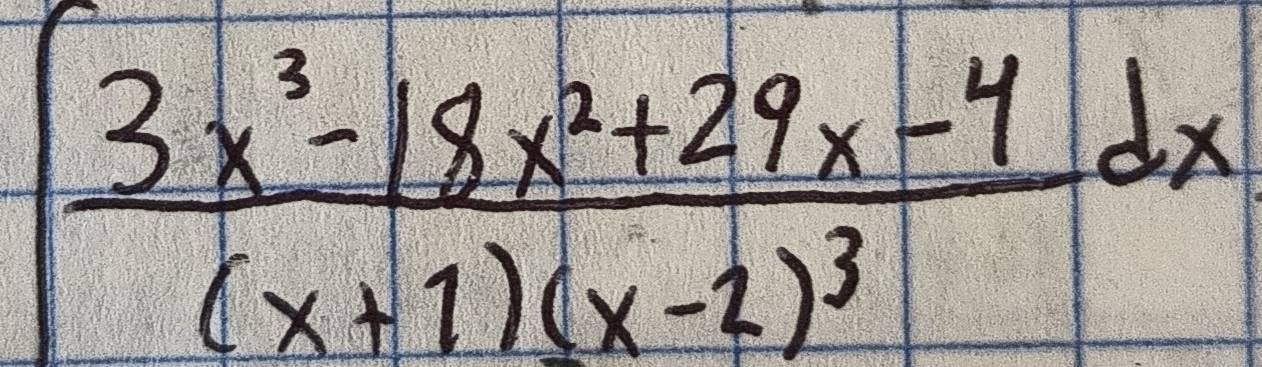 ∫ (3x³ - 18x² + 29x - 4) / ((x + 1)(x - 2)³) dx